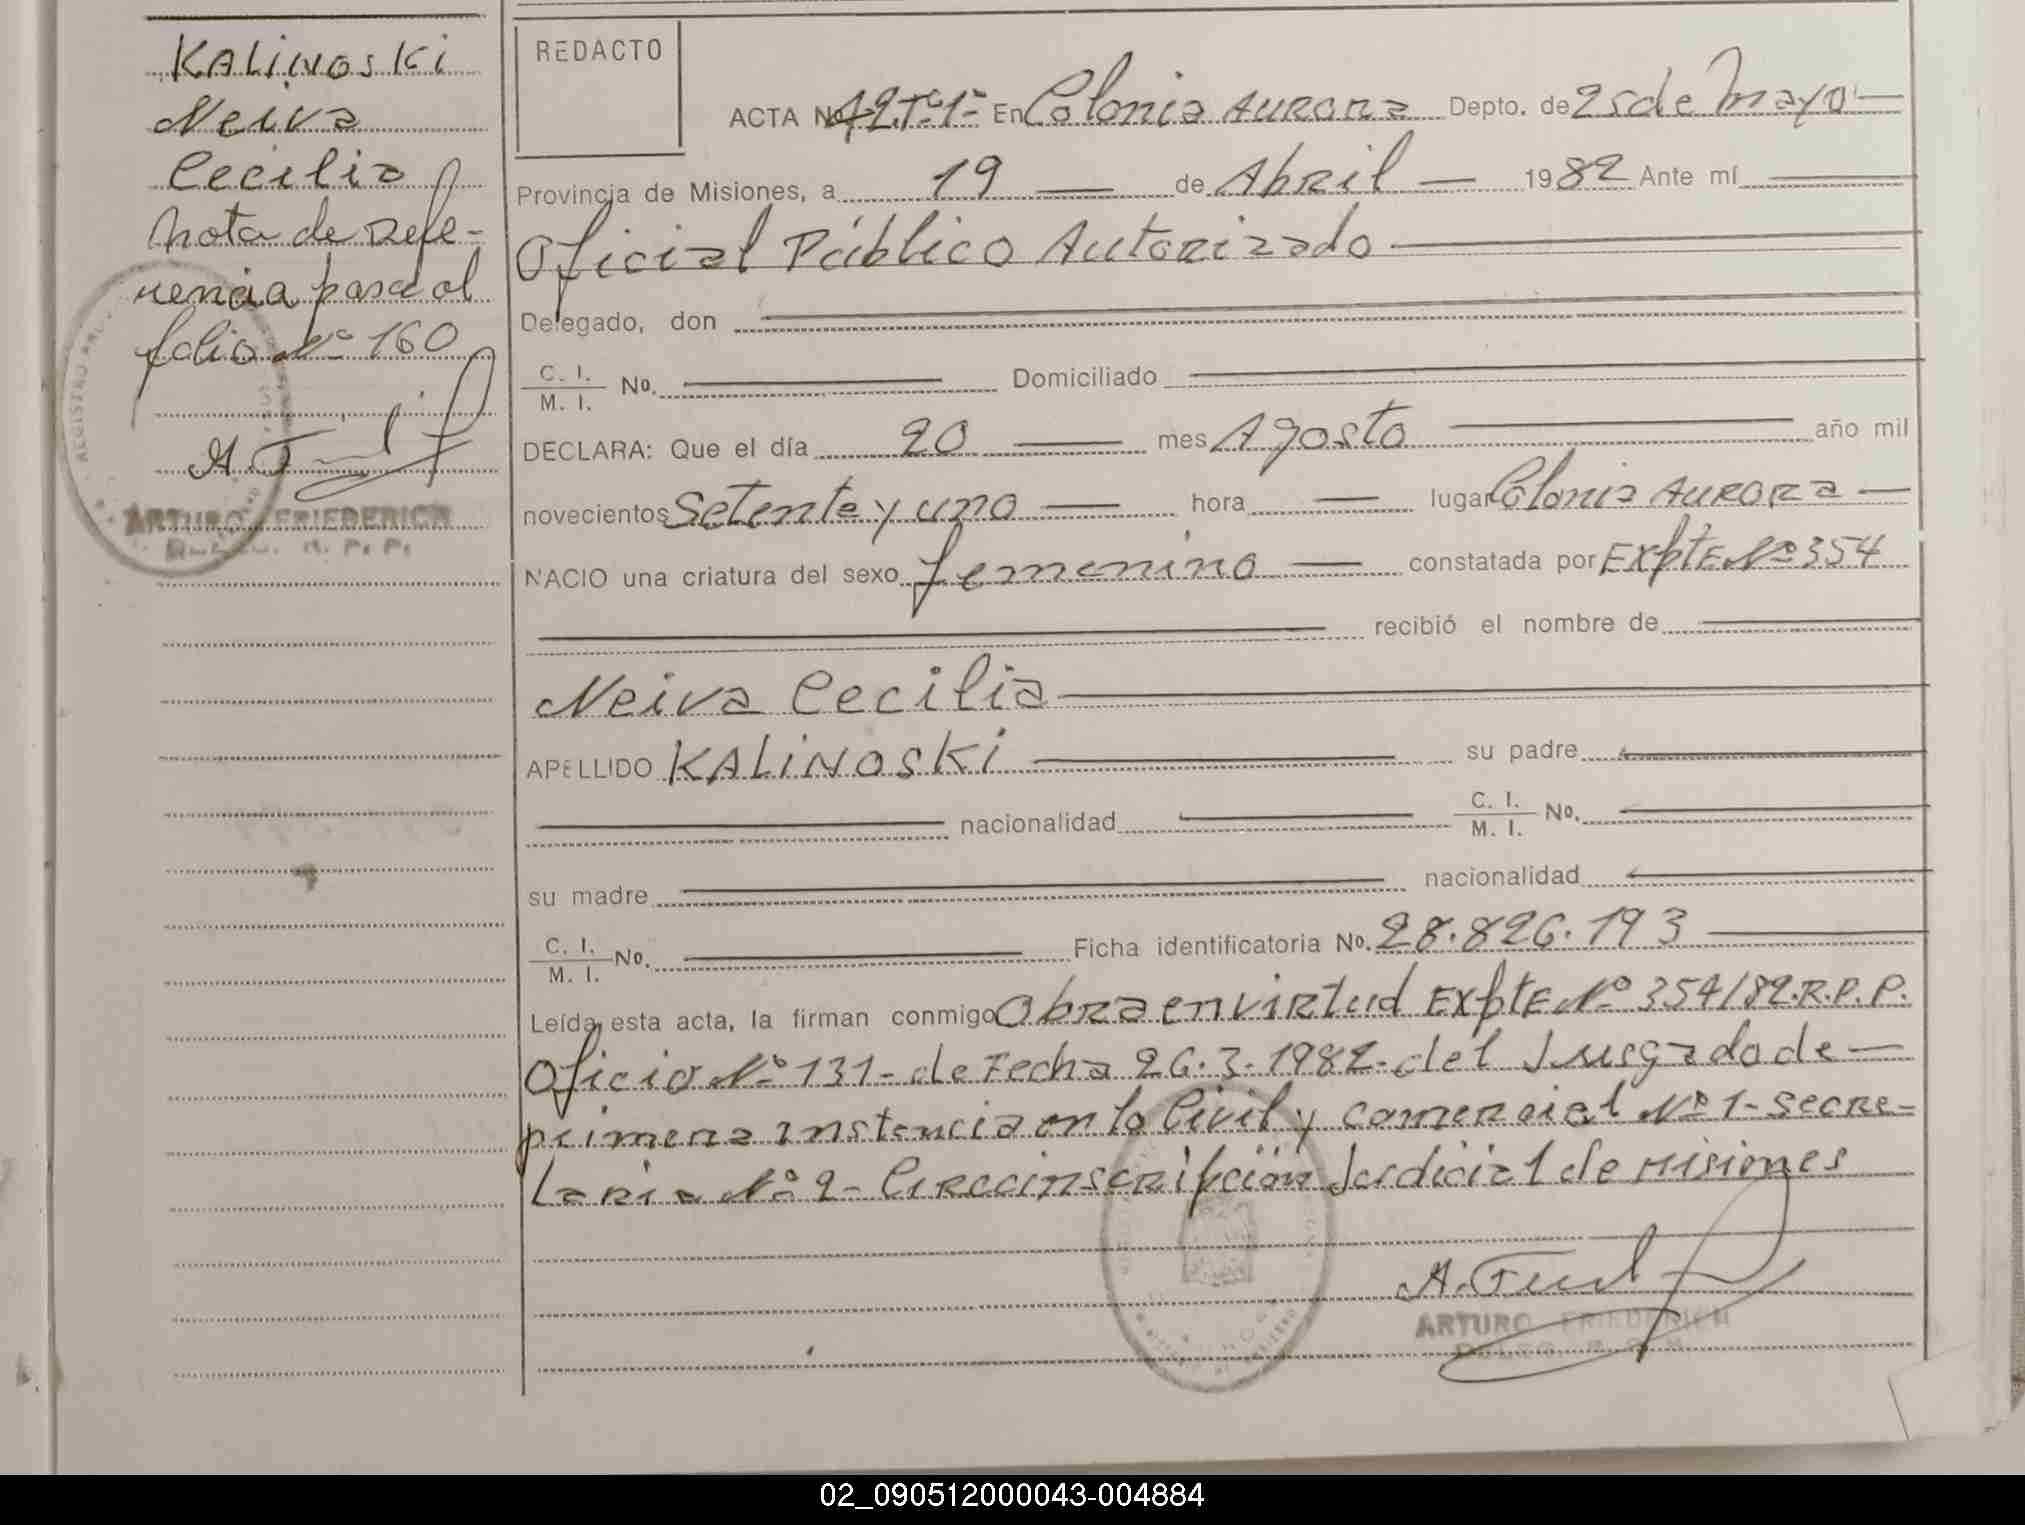 KALINOSKI
Neiva
Cecilia
Nota de Refe-
rencia pasa al
folio Nº 160
ARTURO FRIEDERICH
REDACTO
ACTA Nº 42 Tº 1º En Colonia AURORA Depto. de 25 de Mayo
Provincia de Misiones, a 19 de Abril 1982 Ante mí
Oficial Público Autorizado
Delegado, don
C. I.
M. I. No. Domiciliado
DECLARA: Que el día 20 mes Agosto año mil
novecientos Setenta y uno hora lugar Colonia AURORA
NACIO una criatura del sexo femenino constatada por EXpTE Nº 354
recibió el nombre de
Neiva Cecilia
APELLIDO KALINOSKI su padre
nacionalidad C. I.
M. I. No.
su madre nacionalidad
C. I.
M. I. No. Ficha identificatoria No. 28.826.193
Leída esta acta, la firman conmigo Obra en virtud EXpTE Nº 354/82.R.P.P.
Oficio Nº 131- de Fecha 26.3.1982- del Jusgado de
primera instancia en lo Civil y comercial Nº 1- Secre-
taria Nº 2- Circunscripción Judicial de Misiones
ARTURO FRIEDERICH
02_090512000043-004884